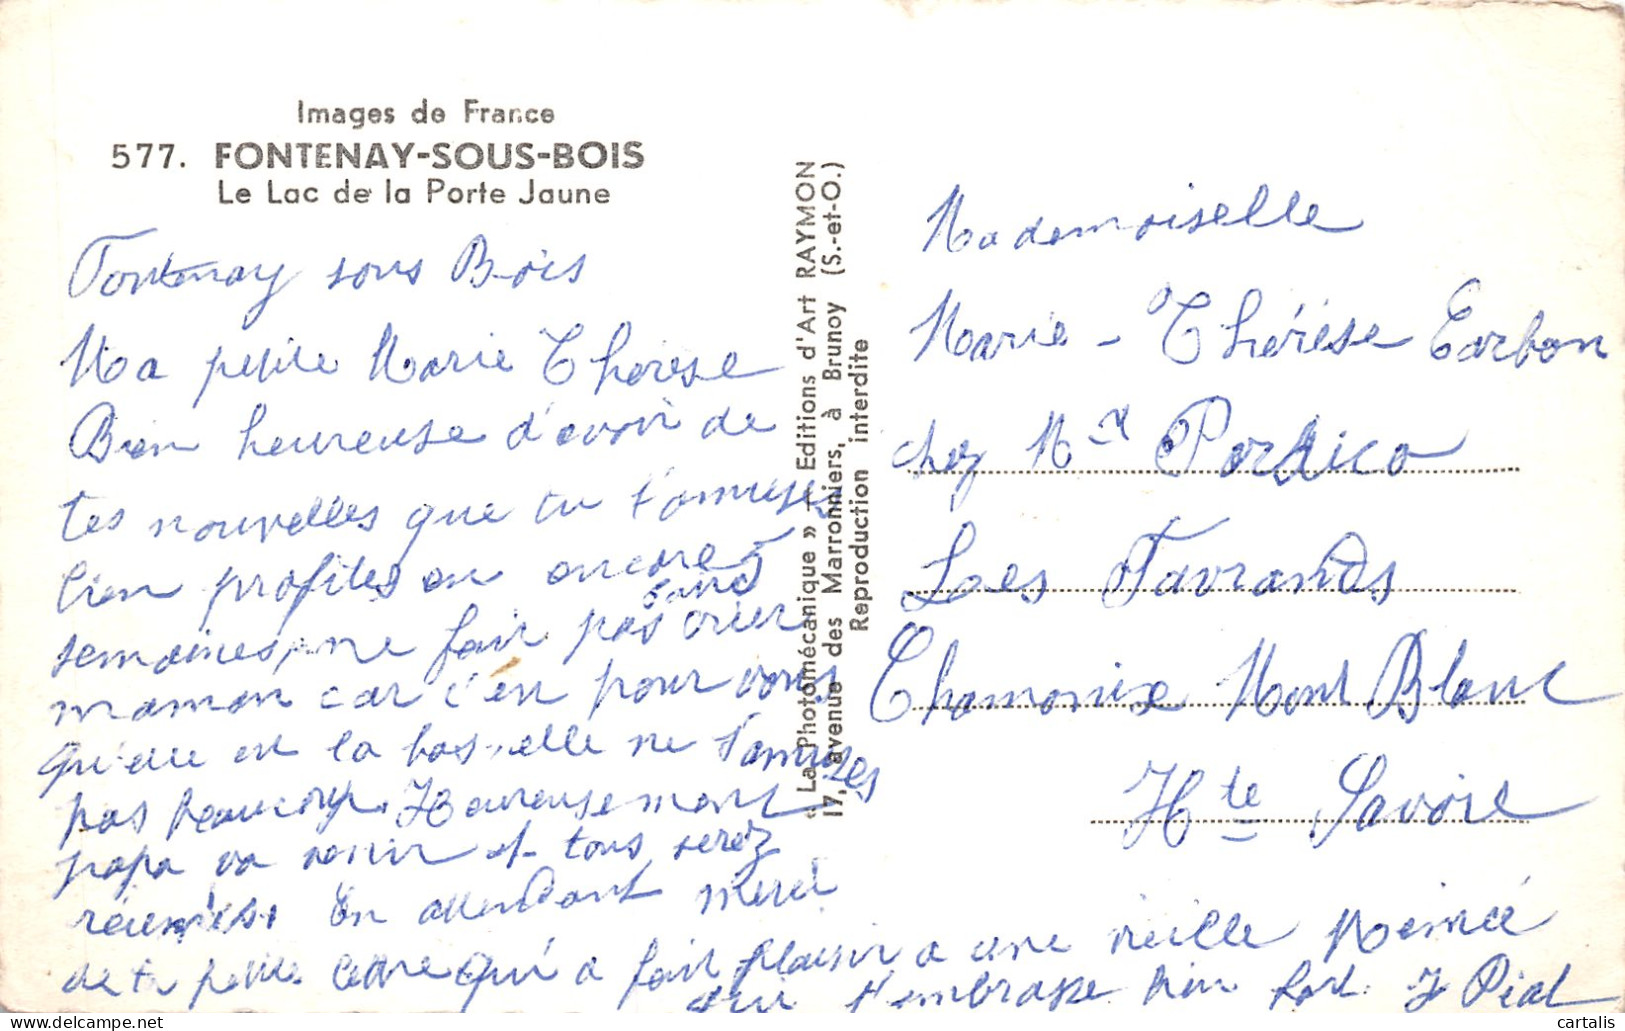 Images de France
577. FONTENAY-SOUS-BOIS
Le Lac de la Porte Jaune
Fontenay sous Bois
Ma petite Marie Therese
Bien heureuse d'avoir de
tes nouvelles que tu t'amuses
bien profites en encore 5
semaines, ne fair pas crier
sans
maman car c'en pour vous
qu'elle est la bas, elle ne s'amuses
pas beaucoup. Heureusement
papa va venir et tous serez
réunies. En attendant merci
de ta petite lettre qui a fair plaisir a une vieille Mémée
qui t'embrasse bien fort. J Pial
« La Photomécanique » — Editions d'Art RAYMON
17, avenue des Marronniers, à Brunoy (S.-et-O.)
Reproduction interdite
Mademoiselle
Marie - Thérèse Carbon
chez Mr
Les Favrands
Chamonixe Mont Blanc
Hte Savoie
delcampe.net
cartalis